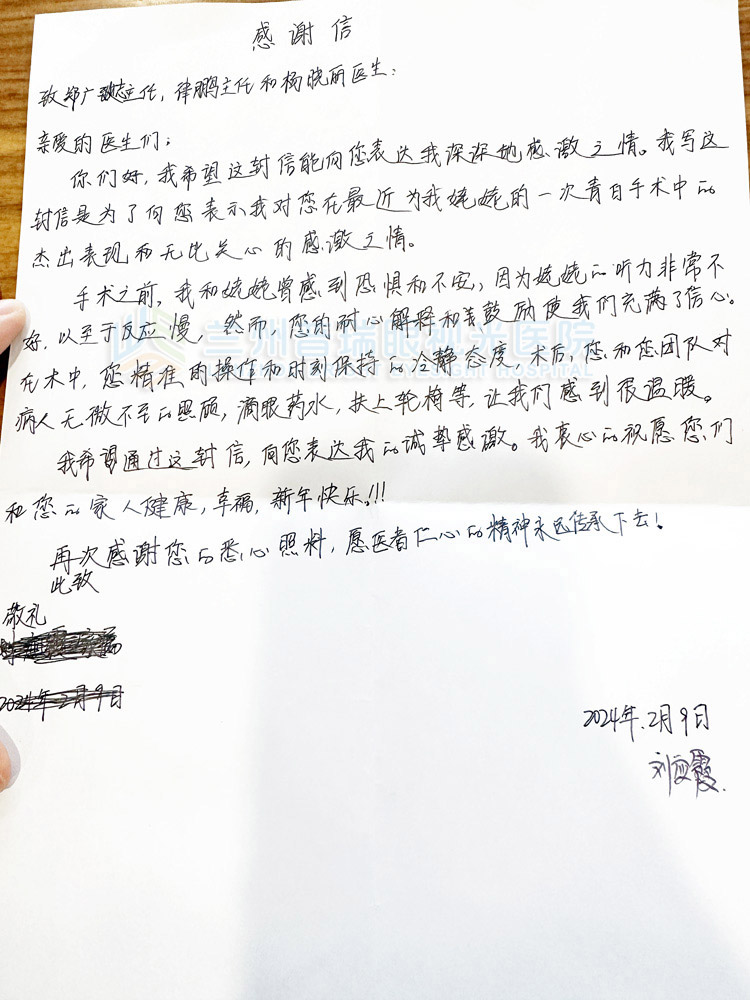 感谢信
致郑广瑛主任，律鹏主任和杨晓丽医生：
亲爱的医生们；
你们好，我希望这封信能向您表达我深深地感激之情。我写这
封信是为了向您表示我对您在最近为我姥姥的一次青白手术中的
杰出表现和无比关心的感激之情。
手术之前，我和姥姥曾感到恐惧和不安，因为姥姥的听力非常不
好，以至于反应慢，然而，您的耐心解释和鼓励使我们充满了信心。
兰州普瑞眼视光医院
在术中，您精准的操作和时刻保持的冷静态度，术后，您和您团队对
病人无微不至的照顾，滴眼药水，扶上轮椅等，让我们感到很温暖。
我希望通过这封信，向您表达我的诚挚感激。我衷心的祝愿您们
和您的家人健康，幸福，新年快乐！！！
再次感谢您的悉心照料，愿医者仁心的精神永远传承下去！
此致
敬礼
2024年2月9日
2024年.2月9日
刘应霞.